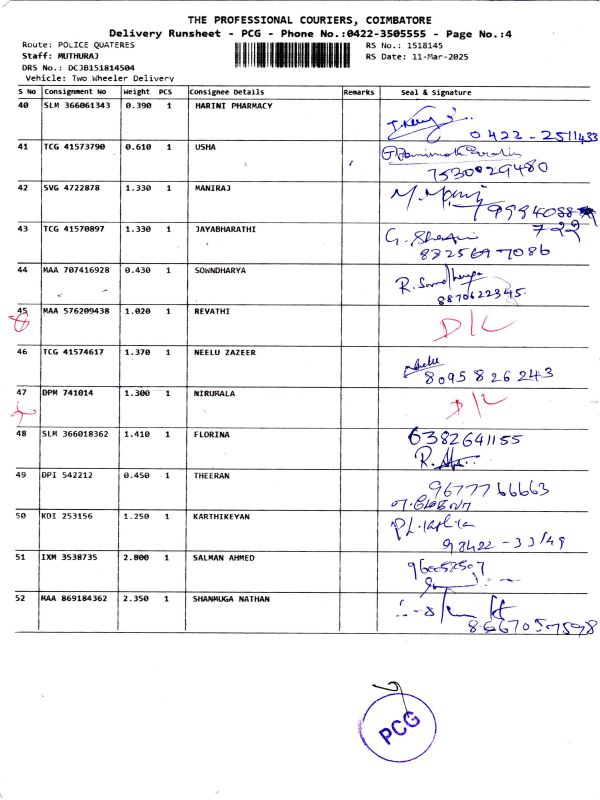 THE PROFESSIONAL COURIERS, COIMBATORE
Delivery Runsheet - PCG - Phone No.:0422-3505555 - Page No.:4
Route: POLICE QUATERES RS No.: 1518145
Staff: MUTHURAJ RS Date: 11-Mar-2025
DRS No.: DCJB151814504
Vehicle: Two Wheeler Delivery
S No Consignment No Weight PCS Consignee Details Remarks Seal & Signature
40 SLM 366061343 0.390 1 HARINI PHARMACY
0422-2511433
41 TCG 41573790 0.610 1 USHA
7530029480
42 SVG 4722878 1.330 1 MANIRAJ
M. Mani
43 TCG 41570897 1.330 1 JAYABHARATHI
722
G.
8825697086
44 MAA 707416928 0.430 1 SOWNDHARYA
R. Sowndharya
8870622345.
45 MAA 576209438 1.020 1 REVATHI
D/L
46 TCG 41574617 1.370 1 NEELU ZAZEER
8095826243
47 DPM 741014 1.300 1 NIRUMALA
D/L
48 SLM 366018362 1.410 1 FLORINA
6382641155
R.
49 DPI 542212 0.450 1 THEERAN
9677766663
50 KDI 253156 1.250 1 KARTHIKEYAN
98422-33149
51 IXM 3538735 2.800 1 SALMAN AHMED
52 MAA 869184362 2.350 1 SHANMUGA NATHAN
8667057598
PCG